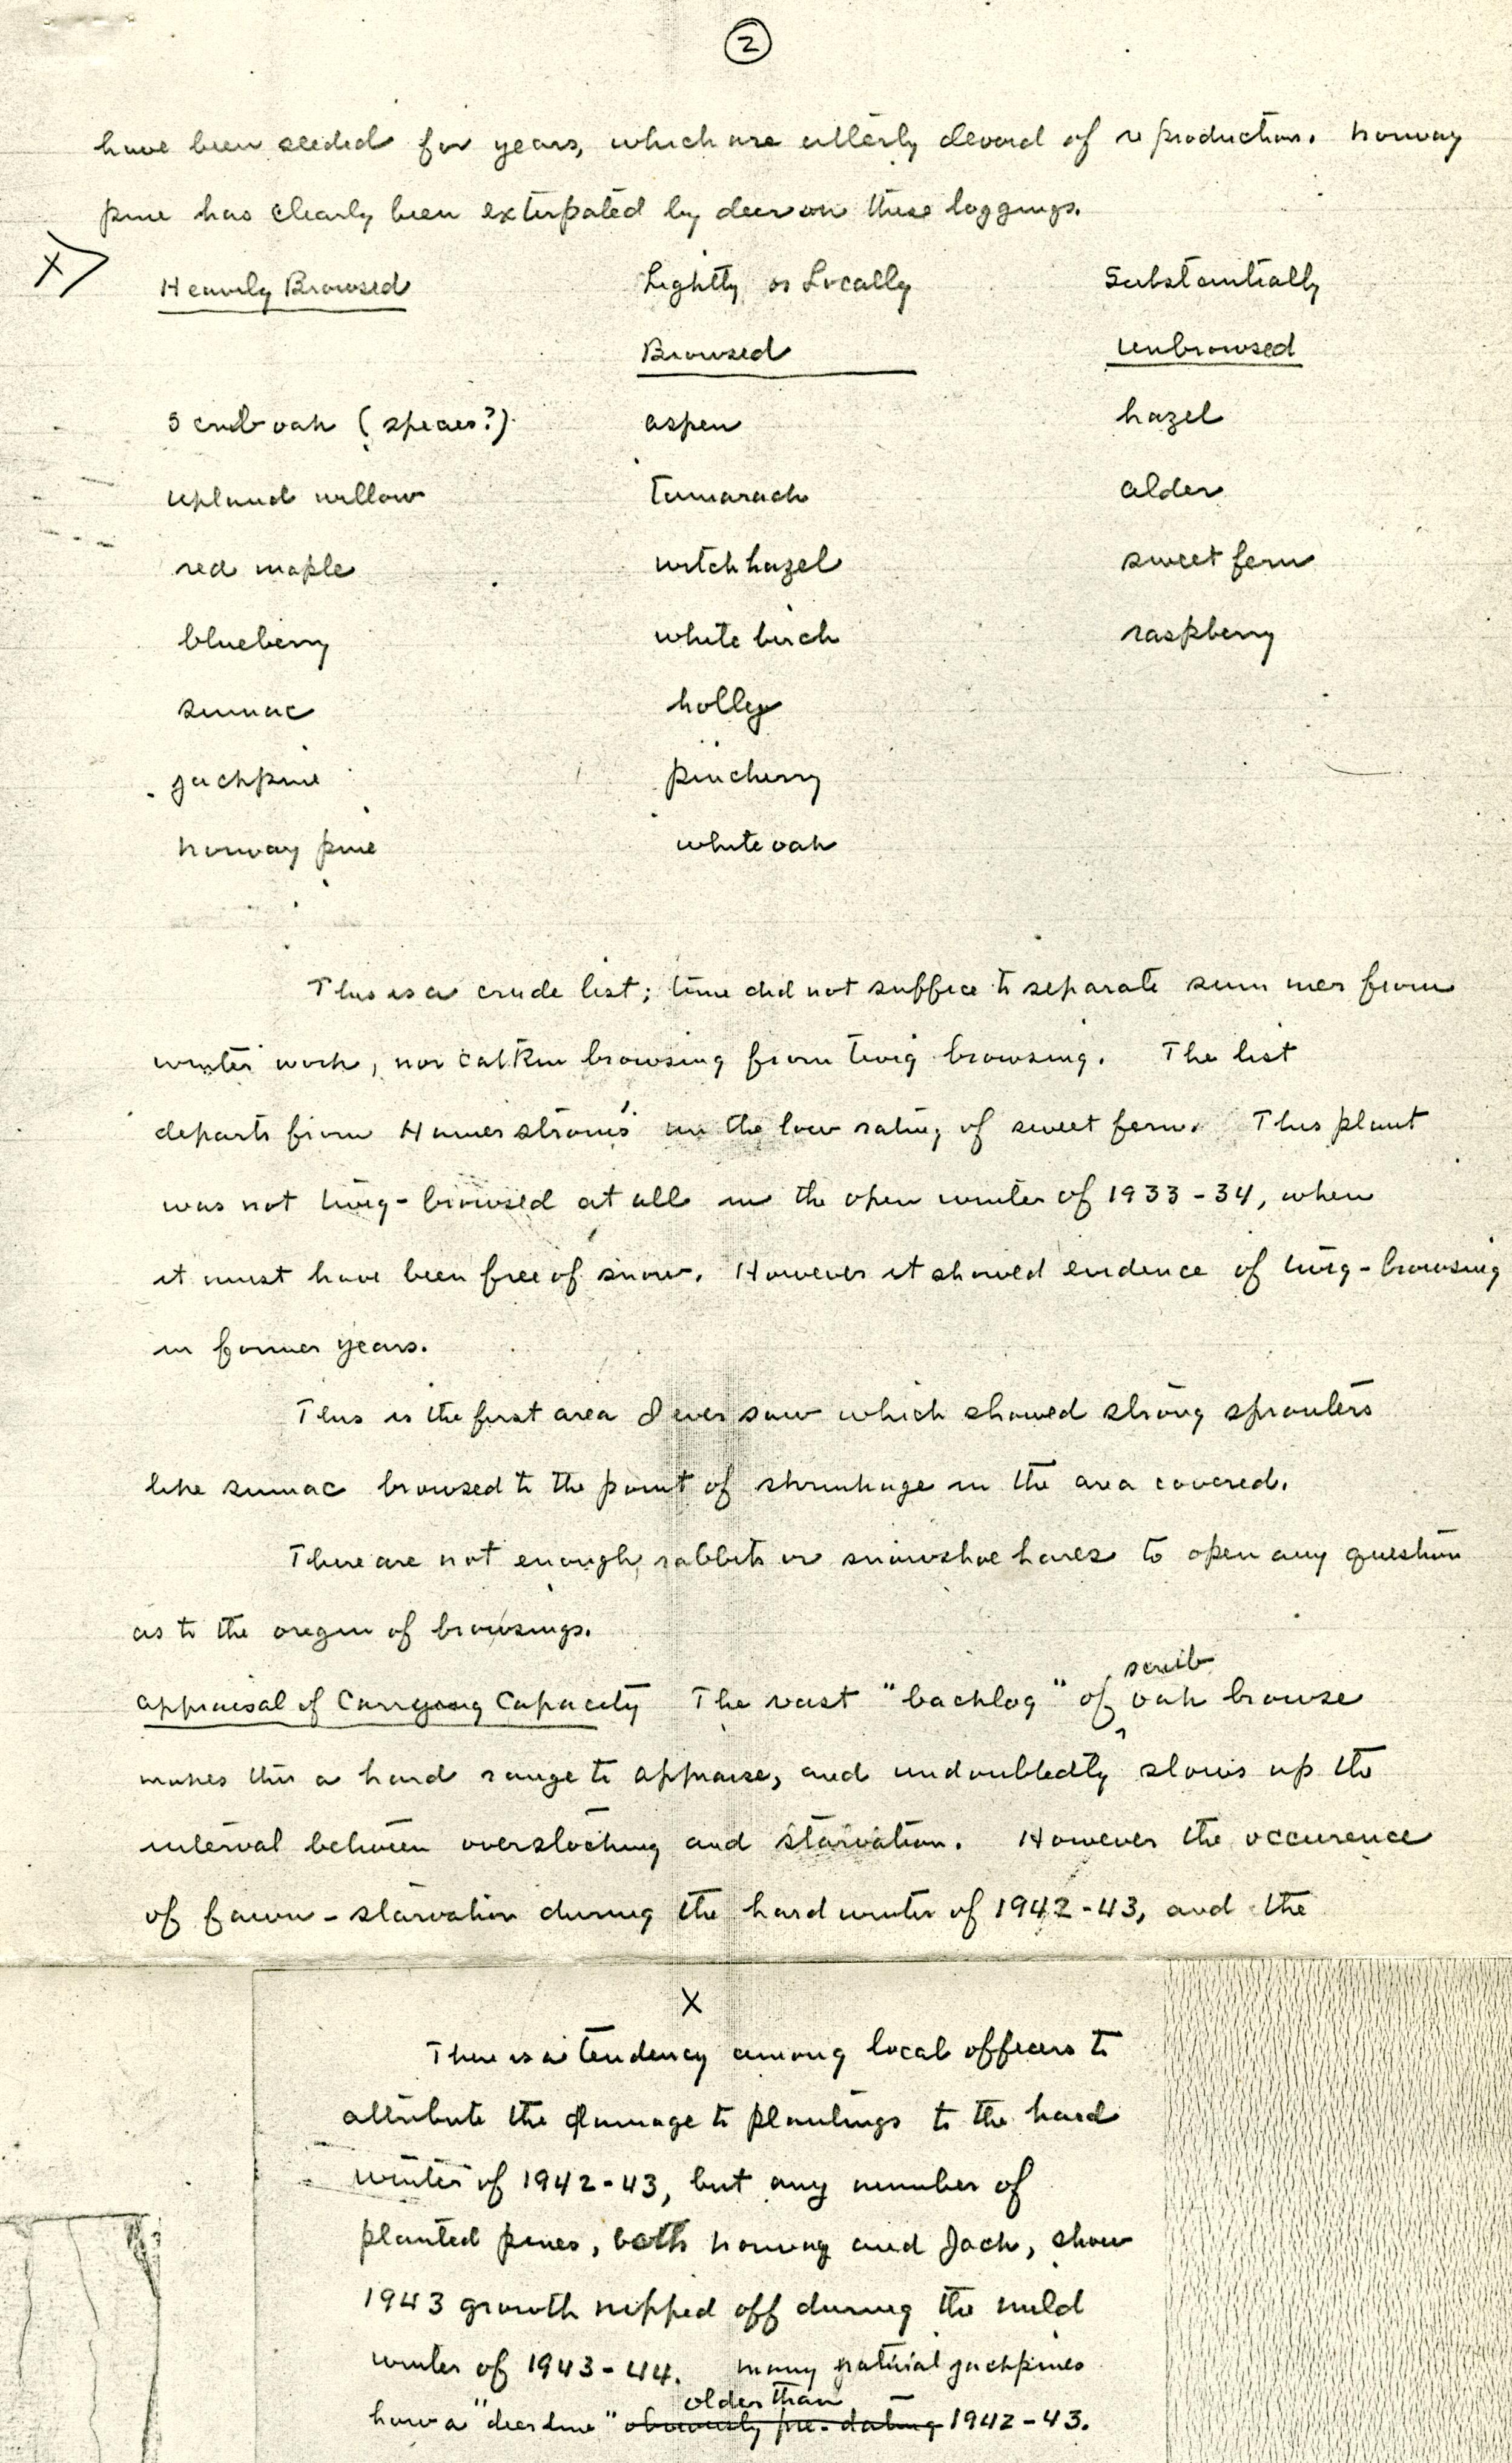 2
have been seeded for years, which are utterly devoid of reproduction. Norway
pine has clearly been extirpated by deer on these loggings.
X
Heavily Browsed Lightly or Locally Substantially
Browsed unbrowsed
Scrub oak (species?) aspen hazel
upland willow tamarack alder
red maple witch hazel sweet fern
blueberry white birch raspberry
sumac holley
jackpine pincherry
norway pine white oak
This is a crude list; time did not suffice to separate summer from
winter work, nor catkin browsing from twig browsing. The list
departs from Hamerstrom's in the low rating of sweet fern. This plant
was not twig-browsed at all in the open winter of 1933-34, when
it must have been free of snow. However it showed evidence of twig-browsing
in former years.
This is the first area I ever saw which showed strong sprouters
like sumac browsed to the point of shrinkage in the area covered.
There are not enough rabbits or snowshoe hares to open any question
as to the origin of browsings.
scrub
appraisal of Carrying Capacity The vast "backlog" of oak browse
makes this a hard range to appraise, and undoubtedly slows up the
interval between overstocking and starvation. However the occurence
of fawn-starvation during the hard winter of 1942-43, and the
X
There is a tendency among local officers to
attribute the damage to plantings to the hard
winter of 1942-43, but any number of
planted pines, both norway and Jack, show
1943 growth nipped off during the mild
winter of 1943-44. Many natural jackpines
older than
have a "deer line" obviously pre-dating 1942-43.